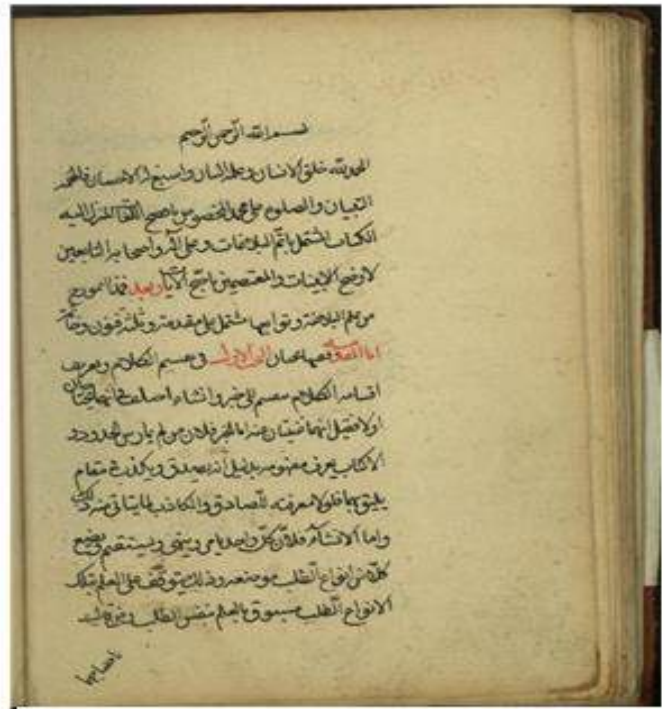 بسم الله الرحمن الرحيم
الحمد لله خلق الانسان وعلمه البيان واسبغ له الاحسان فالحمد
التبيان والصلوة على محمد المخصوص بافصح اللغات المنزل اليه
الكتاب المشتمل باتم البلاغات وعلى اله واصحابه التابعين
لاوضح البينات والمعتصمين بابتج الآيات وبعد فهذا انموذج
من علم البلاغة وتوابعها مشتمل على مقدمة وثلثة فنون وخاتمة
اما المقدمة ففيها بحثان البحث الاول في تقسيم الكلام وتعريف
اقسامه الكلام منقسم الى خبر وانشاء اختلف في انهما يحتاجان
اولا فقيل انهما غنيتان عنه اما الخبر فلان من لم يمارس الحدود
الاكتاب يعرف مفهومه بدليل انه يصدق ويكذب في مقام
يليق بهما فلولا معرفته للصادق والكاذب لما يتاتى منه ذلك
واما الانشاء فلان كل واحد يامر وينهى ويستفهم ويضع
كلا من انواع الطلب موضعه وذلك يتوقف على العلم بتلك
الانواع الطلب مسبوق بالعلم بنفس الطلب وغيره